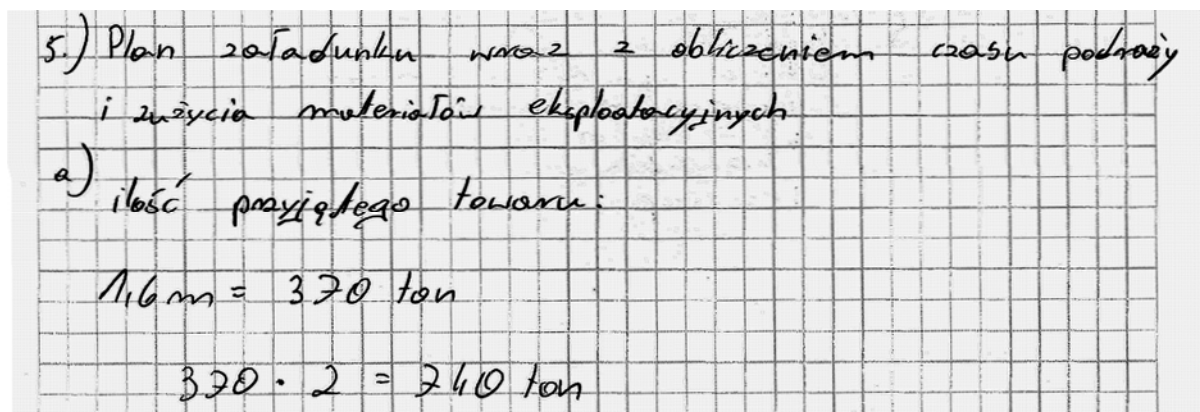 5.) Plan załadunku wraz z obliczeniem czasu podróży
i zużycia materiałów eksploatacyjnych
a)
ilość przyjętego towaru:
1,6 m = 370 ton
370 · 2 = 740 ton